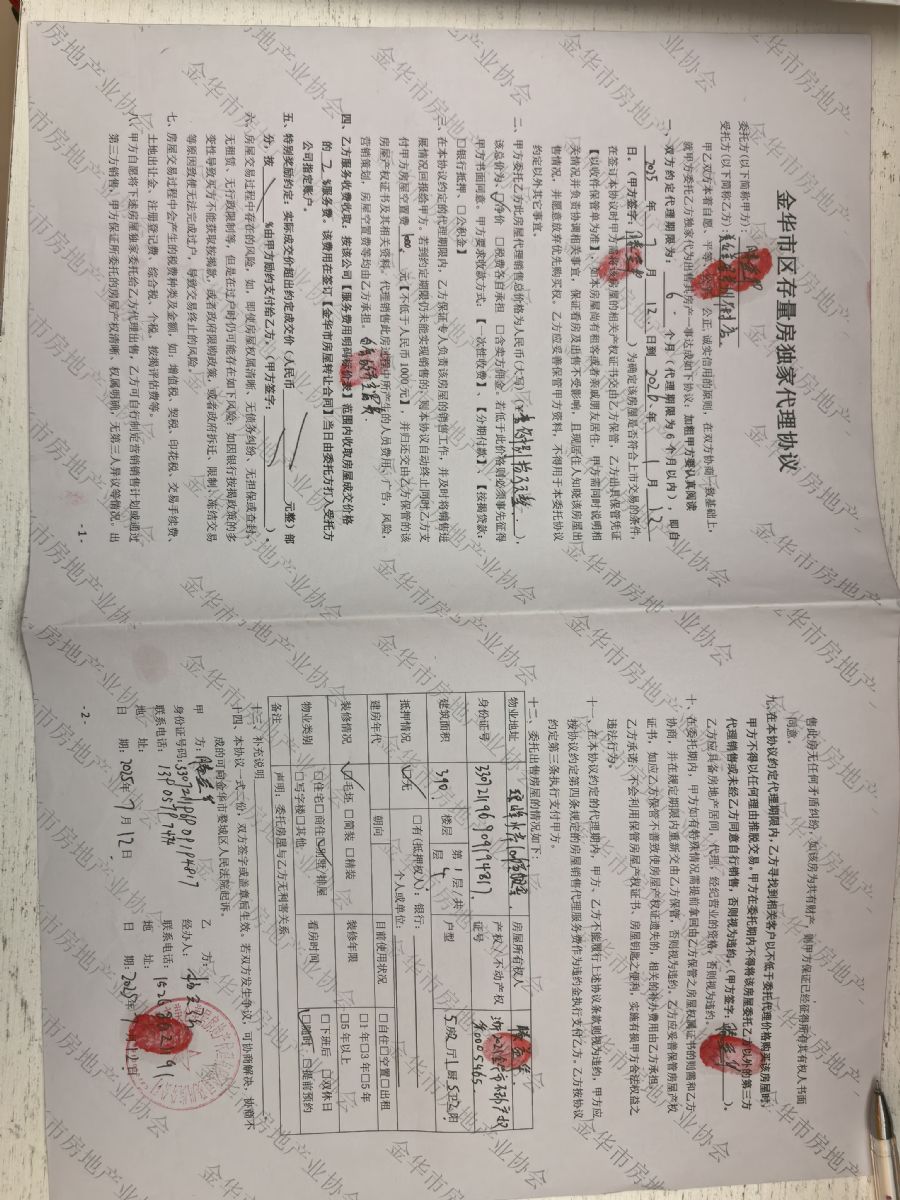 金华市区存量房独家代理协议
委托方(以下简称甲方):
受托方(以下简称乙方):
甲乙双方本着自愿、平等、公正、诚实信用的原则,在双方协商一致基础上,
就甲方委托乙方独家代为出售其房产一事达成如下协议,加粗甲方要认真阅读
一、双方约定代理期限为:6个月(代理期限为6个月以内),即自
2025年7月12日到2026年1月12
日。(甲方签字: )为确定该房屋是否符合上市交易的条件,
在签订本协议时甲方需将该房屋的相关产权证书交由乙方保管,乙方出具保管凭证
【以收件保管单为准】,如本房屋尚有租客或者亲戚朋友居住,甲方需同时说明相
关情况并负责协调相关事宜,保证看房及出售不受影响,且现居住人知晓该房屋出
售情况,并愿意放弃优先购买权。乙方应妥善保管甲方资料,不得用于本委托协议
约定以外其它事宜。
二、甲方委托乙方此房屋代理销售总价格为人民币(大写)( ),
该总价为:净价 □税费各自承担 □含卖方佣金。若低于此价格则必须事先征得
甲方书面同意。甲方要求收款方式:【一次性收费】、【分期付款】、【按揭贷款:
□银行抵押、□公积金】
三、在本协议约定的代理期限内,乙方保证专人负责该房屋的销售工作,并及时将销售进
展情况回报给甲方。若到约定期限仍未能实现销售的,则本协议自动终止同时乙方支
付甲方房屋空置费 元【不低于人民币1000元】,并归还交由乙方保管的该
房屋产权证书及其相关资料。代理销售此房过程中所产生的人员费用,广告,风险,
营销策划,房屋空置费等均由乙方承担。
四、乙方服务收费收取:按该公司【服务费用明码标价表】范围内收取房屋成交价格
的 %服务费。该费用在签订【金华市房屋转让合同】当日由委托方打入受托方
公司指定账户。
五、特别奖励约定:实际成交价超出约定成交价(人民币 元整)部
分,按 %由甲方励约支付给乙方。(甲方签字: )。
六、房屋交易过程中存在的风险。如,即使房屋权属清晰、无债务纠纷、无担保或查封、
无租赁、无行政限制等,但是在过户时仍可能存在如下风险:如因银行按揭政策的多
变性导致买方不能获取按揭款,或者政府限购政策,或者政府拆迁、限制、冻结交易
等原因致使无法完成过户,导致交易终止的风险;
七、房屋交易过程中会产生的税费种类及金额,如:增值税、契税、印花税、交易手续费、
土地出让金、注册登记费、综合税、个税、按揭评估费等。
八、甲方自愿将下述房屋独家委托给乙方代理出售,乙方可自行制定营销销售计划或通过
第三方销售,甲方保证所委托的房屋产权清晰、权属明确、无第三人异议等情况,出
-1-
售此房无任何矛盾纠纷,如该房为共有财产,则甲方保证已经征得所有共有权人书面
同意。
九、在本协议约定代理期限内,乙方寻找到相关客户以不低于委托代理价格购买该房屋时,
甲方不得以任何理由推脱交易。甲方在委托期内不得将该房屋委托乙方以外的第三方
代理销售或未经乙方同意自行销售,否则视为违约。(甲方签字: )。
乙方应具备房地产居间,代理,经纪营业的资格,否则视为违约。
十、在委托期内,甲方如有特殊情况需提前拿回由乙方保管之房屋权属证书的则需和乙方
协商,并在规定期限内重新交由乙方保管,否则视为违约。乙方应妥善保管房屋产权
证书,如应乙方保管不善致使房屋产权证遗失的,相关的补办费用由乙方承担。
乙方承诺:不会利用保管房屋产权证书、房屋钥匙之便利,实施有损甲方合法权益之
违法行为。
十一、在本协议约定的代理期内,甲方、乙方不能履行上述协议条款则视为违约,甲方应
按协议约定第四条规定的房屋销售代理服务费作为违约金执行支付乙方。乙方按协议
约定第三条执行支付甲方。
十二、委托出售房屋的情况如下:
物业地址 房屋所有权人
身份证号 330721196909194817 产权\不动产权证号
建筑面积 340 楼层 第1层/共4层 户型
抵押情况 ☑无 □有(抵押权人):银行: 个人或单位:
建房年代 朝向 目前使用状况 □自住□空置□出租
装修情况 ☑毛坯 □简装 □精装 装修年限 □1年□3年□5年 □5年以上
物业类别 □住宅□商住☑别墅/排屋 □写字楼□其他 看房时间 □下班后 □双休日 □随时 □提前预约
备注 声明:委托房屋与乙方无利害关系
十三、补充说明
十四、本协议一式二份,双方签字或盖章后生效。若双方发生争议,可协商解决,协商不
成的可向金华市婺城区人民法院起诉。
甲 方: 乙 方:
身份证号码:330721196909194817 经办人:
联系电话: 联系电话:
地 址: 地 址:
日 期:2025年7月12日 日 期:2025年7月12日
-2-
金华市房地产业协会